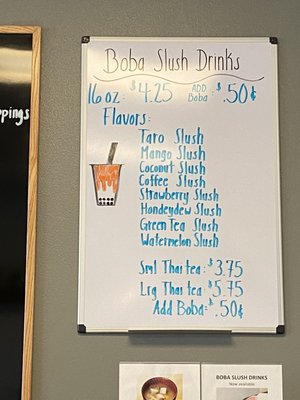 Boba Slush Drinks
16 oz: $4.25 ADD Boba: $.50¢
Flavors:
Taro Slush
Mango Slush
Coconut Slush
Coffee Slush
Strawberry Slush
Hondeydew Slush
Green Tea Slush
Watermelon Slush
Sml Thai tea: $3.75
Lrg Thai tea $5.75
Add Boba= $.50¢
ppings
BOBA SLUSH DRINKS
Now available